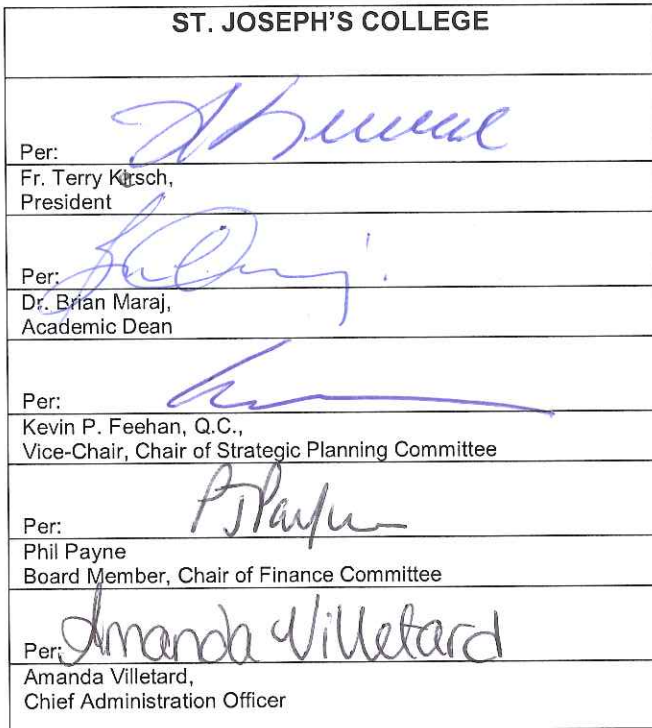 ST. JOSEPH'S COLLEGE
Per:
Fr. Terry Kirsch,
President
Per:
Dr. Brian Maraj,
Academic Dean
Per:
Kevin P. Feehan, Q.C.,
Vice-Chair, Chair of Strategic Planning Committee
Per: PJPayne
Phil Payne
Board Member, Chair of Finance Committee
Per: Amanda Villetard
Amanda Villetard,
Chief Administration Officer